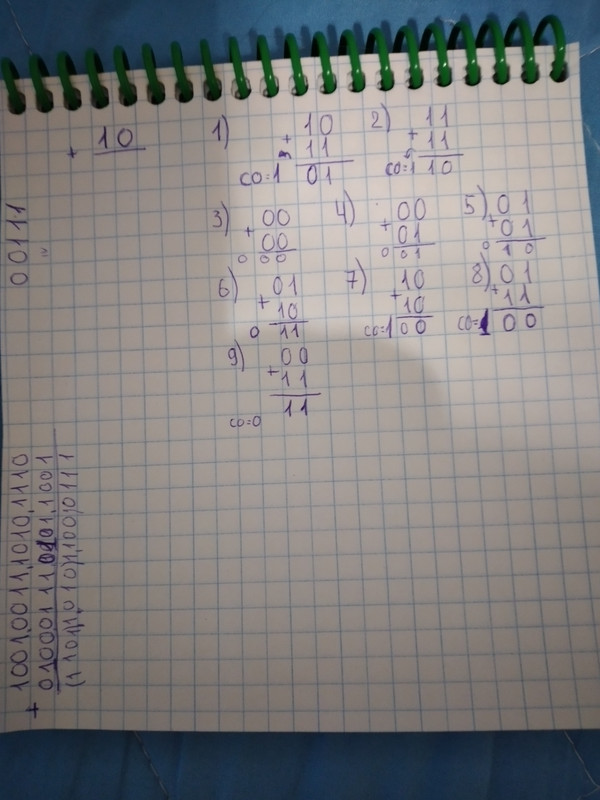 + 10
1) 10
+ 11
co=1 01
2) 11
+ 11
co=1 10
3) 00
+ 00
0 00
4) 00
+ 01
0 01
5) 01
+ 01
0 10
6) 01
+ 10
0 11
7) 10
+ 10
co=1 00
8) 01
+ 11
co=1 00
9) 00
+ 11
co=0 11
00111
=
1001,0011,1010,1110
+